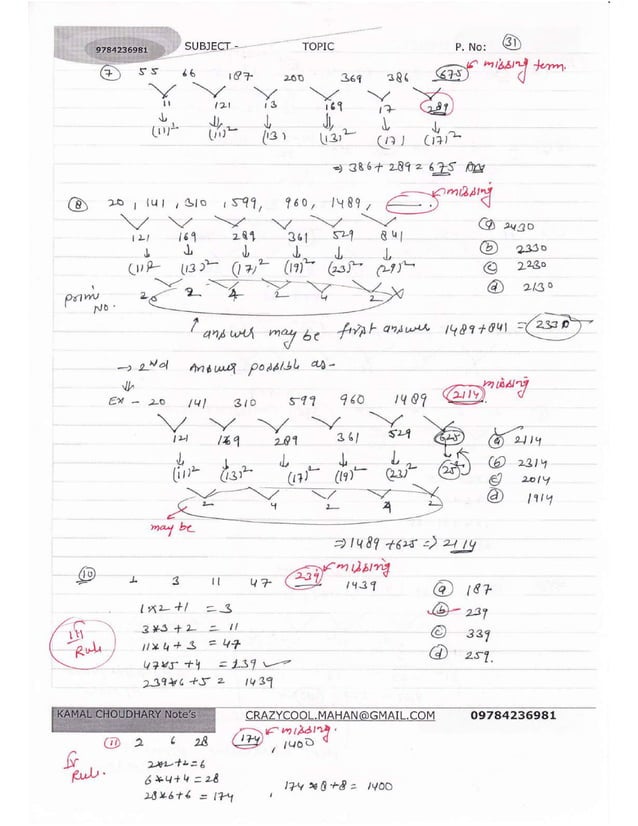 9784236981 SUBJECT - TOPIC P. No: 31
7 55 66 187 200 369 386 675 missing term.
11 121 13 169 17 289
(11)² (11)² (13) (13)² (17) (17)²
⇒ 386 + 289 = 675 Ans
8 20, 141, 310, 599, 960, 1489, ___. missing
121 169 289 361 529 841
(11)² (13)² (17)² (19)² (23)² (29)²
a 2430
b 2330
c 2230
d 2130
prime No. 2 2 4 2 4 2
↑ answer may be first answer 1489 + 841 = 2330
→ 2nd answer possible as-
Ex - 20 141 310 599 960 1489 2114 missing
121 169 289 361 529 625
(11)² (13)² (17)² (19)² (23)² (25)²
a 2114
b 2314
c 2014
d 1914
2 4 2 4 2
may be
⇒ 1489 + 625 ⇒ 2114
10 1 3 11 47 239 1439 missing
a 187
b 239
c 339
d 259.
III Rule
1*2 + 1 = 3
3*3 + 2 = 11
11*4 + 3 = 47
47*5 + 4 = 239
239*6 + 5 = 1439
KAMAL CHOUDHARY Note's CRAZYCOOL.MAHAN@GMAIL.COM 09784236981
11 2 6 28 174, 1400 missing.
IV Rule.
2*2+2=6
6*4+4=28
28*6+6=174, 174*8+8=1400